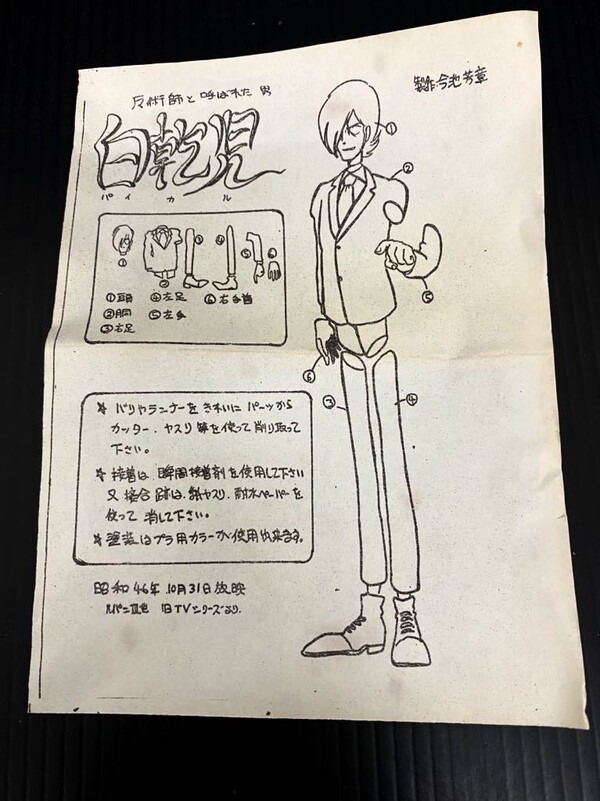 魔術師と呼ばれた男
製作 今池芳章
白乾児
パイカル
① ② ③ ④ ⑤ ⑥
①頭 ④左足 ⑥右手首
②胴 ⑤左手
③右足
① ② ③ ④ ⑤ ⑥
* バリやランナーをきれいにパーツから
カッター、ヤスリ等を使って削り取って
下さい。
* 接着は、瞬間接着剤を使用して下さい
又接合跡は、紙ヤスリ、耐水ペーパーを
使って消して下さい。
* 塗装はプラ用カラーが使用出来ます。
昭和46年10月31日放映
ルパン三世 旧TVシリーズより。